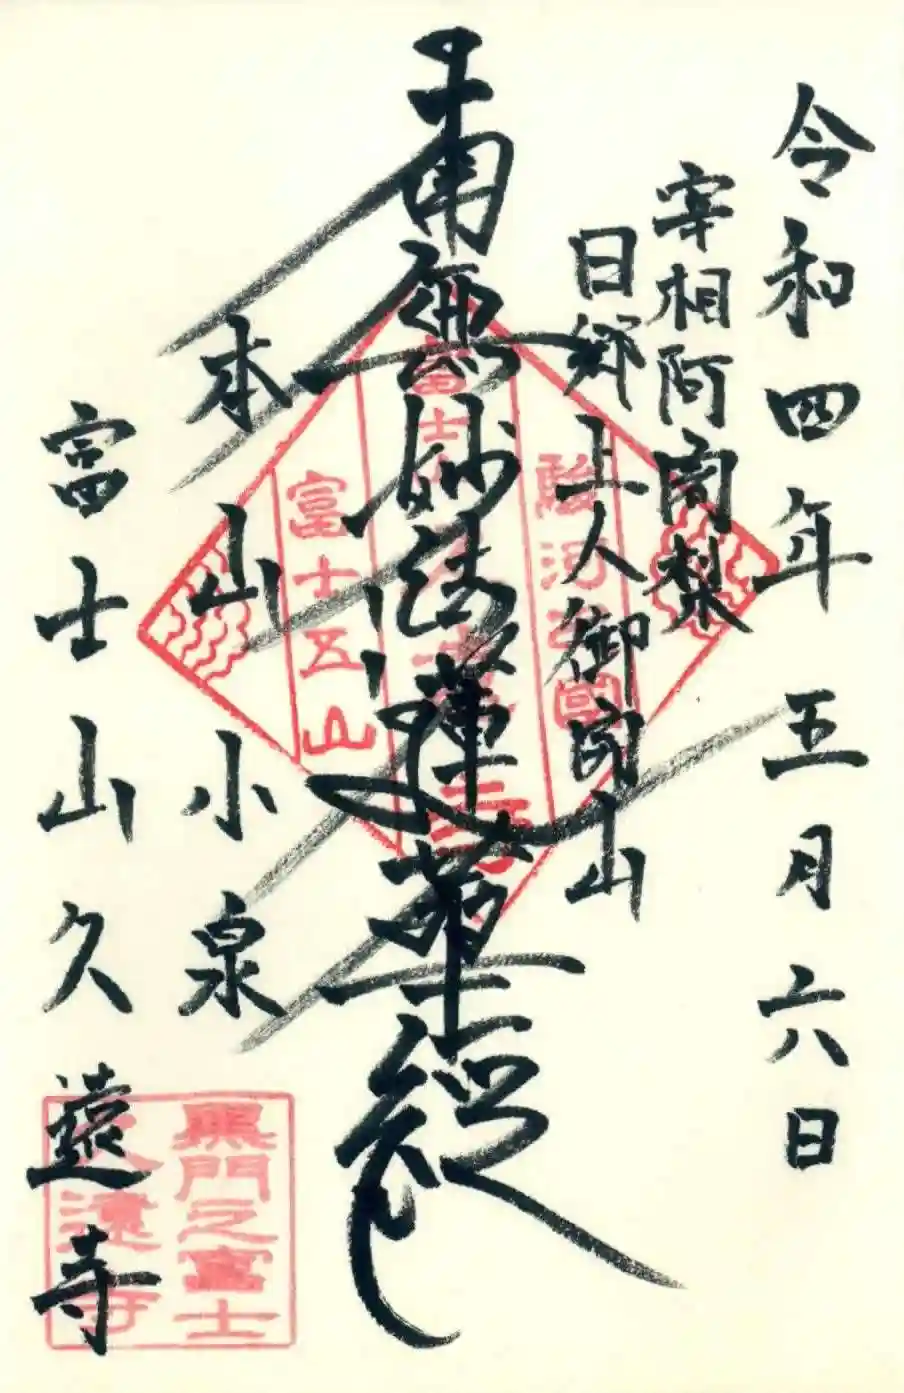 令和四年五月六日
宰相阿闍梨
日郷上人御開山
南無妙法蓮華経
本山小泉
富士山久遠寺
富士五山
黒門之富士
久遠寺